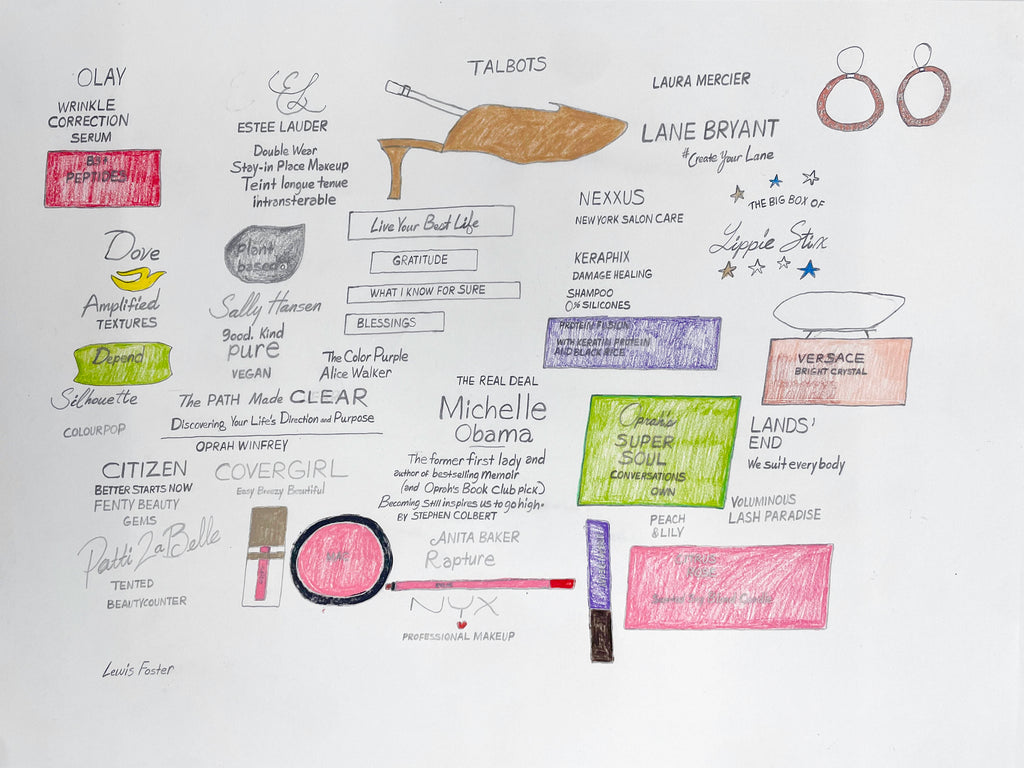 OLAY
WRINKLE
CORRECTION
SERUM
B3+
PEPTIDES
EL
ESTEE LAUDER
Double Wear
Stay-in Place Makeup
Teint longue tenue
intransterable
TALBOTS
LAURA MERCIER
LANE BRYANT
#Create Your Lane
THE BIG BOX OF
Lippie Stix
NEXXUS
NEW YORK SALON CARE
KERAPHIX
DAMAGE HEALING
SHAMPOO
0% SILICONES
PROTEIN FUSION
WITH KERATIN PROTEIN
AND BLACK RICE
Live Your Best Life
GRATITUDE
WHAT I KNOW FOR SURE
BLESSINGS
Dove
Amplified
TEXTURES
Depend
Silhouette
COLOURPOP
Plant
based
Sally Hansen
good. Kind
pure
VEGAN
The Color Purple
Alice Walker
The PATH Made CLEAR
Discovering Your Life's Direction and Purpose
OPRAH WINFREY
VERSACE
BRIGHT CRYSTAL
THE REAL DEAL
Michelle
Obama
The former first lady and
author of bestselling memoir
(and Oprah's Book Club pick)
Becoming Still inspires us to go high.
BY STEPHEN COLBERT
Oprah's
SUPER
SOUL
CONVERSATIONS
OWN
LANDS'
END
We suit every body
CITIZEN
BETTER STARTS NOW
FENTY BEAUTY
GEMS
Patti LaBelle
TENTED
BEAUTYCOUNTER
COVERGIRL
Easy Breezy Beautiful
ANITA BAKER
Rapture
NYX
PROFESSIONAL MAKEUP
PEACH
& LILY
VOLUMINOUS
LASH PARADISE
Lewis Foster